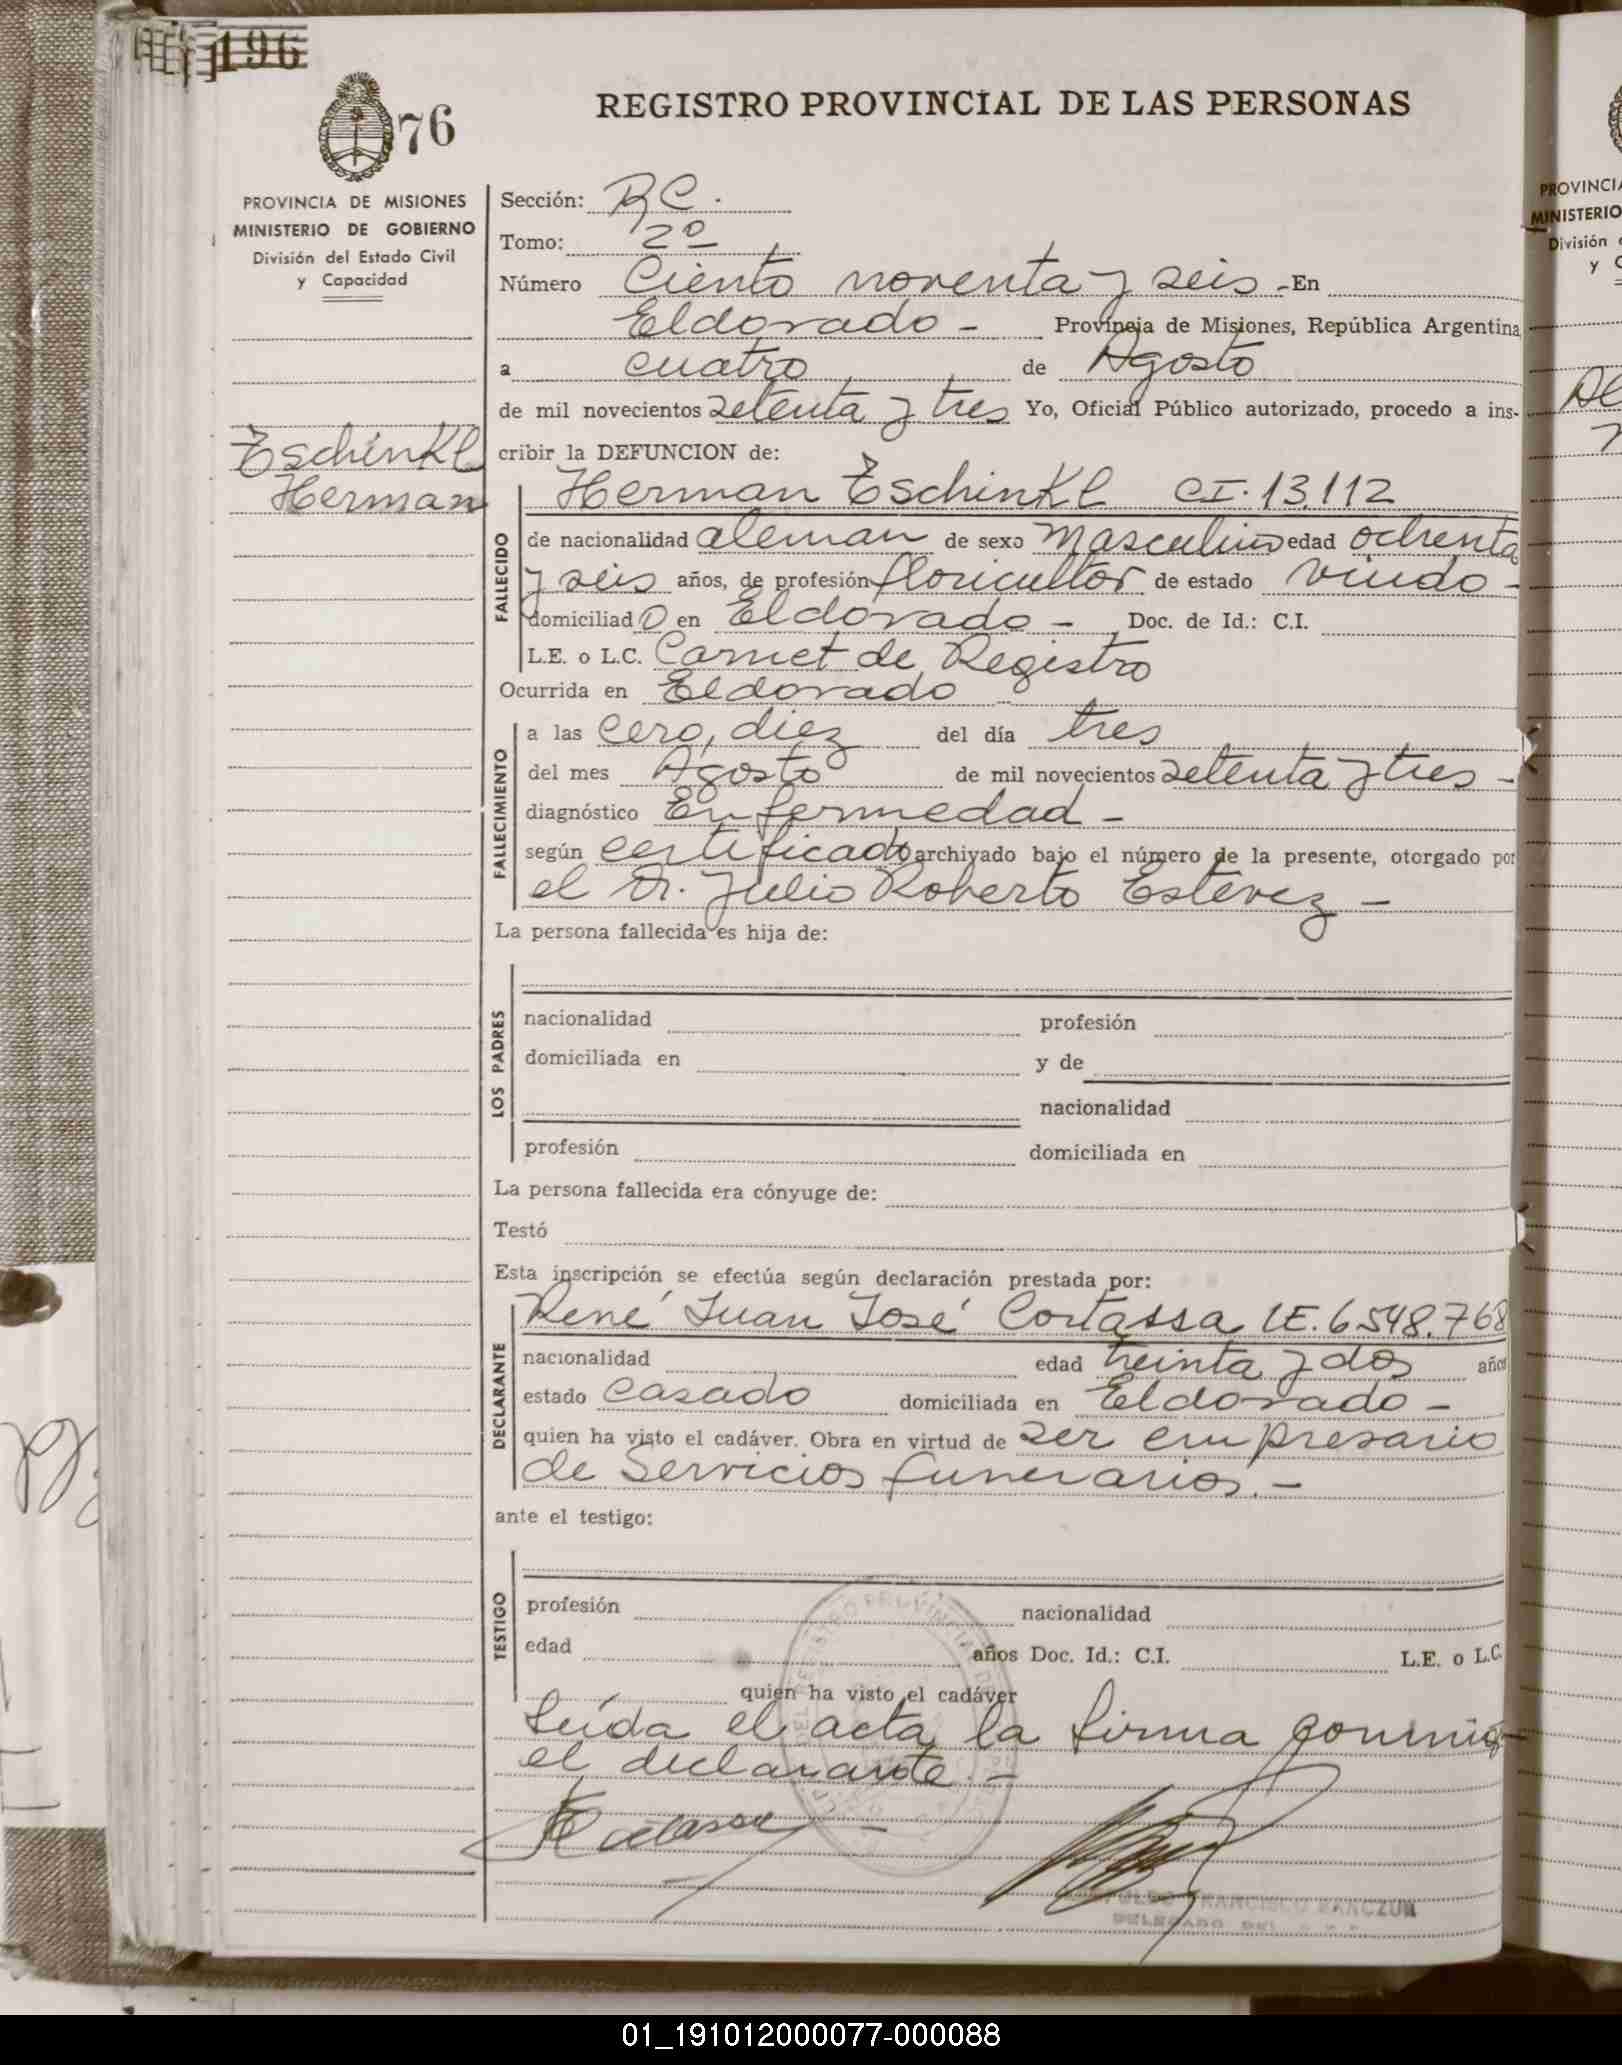 196
76
REGISTRO PROVINCIAL DE LAS PERSONAS
PROVINCIA DE MISIONES
MINISTERIO DE GOBIERNO
División del Estado Civil
y Capacidad
Eschinkl
Herman
Sección: RC.
Tomo: 2º
Número Ciento noventa y seis - En
Eldorado - Provincia de Misiones, República Argentina
a cuatro de Agosto
de mil novecientos setenta y tres Yo, Oficial Público autorizado, procedo a ins-
cribir la DEFUNCION de:
FALLECIDO
Herman Eschinkl CI. 13.112
de nacionalidad aleman de sexo Masculino edad ochenta
y seis años, de profesión floricultor de estado viudo -
domiciliado en Eldorado - Doc. de Id.: C.I.
L.E. o L.C. Carnet de Registro
Ocurrida en Eldorado
FALLECIMIENTO
a las cero, diez del día tres
del mes Agosto de mil novecientos setenta y tres -
diagnóstico Enfermedad -
según certificado archivado bajo el número de la presente, otorgado por
el Dr. Julio Roberto Estevez -
La persona fallecida es hija de:
LOS PADRES
nacionalidad profesión
domiciliada en y de
nacionalidad
profesión domiciliada en
La persona fallecida era cónyuge de:
Testó
Esta inscripción se efectúa según declaración prestada por:
DECLARANTE
René Juan José Cortassa LE. 6.548.768
nacionalidad edad treinta y dos años
estado casado domiciliada en Eldorado -
quien ha visto el cadáver. Obra en virtud de ser empresario
de Servicios funerarios. -
ante el testigo:
TESTIGO
profesión nacionalidad
edad años Doc. Id.: C.I. L.E. o L.C.
quien ha visto el cadáver
Leída el acta, la firma conmigo
el declarante. -
FRANCISCO
DELEGADO DEL
PROVINCIA
MINISTERIO
División
y
01_191012000077-000088